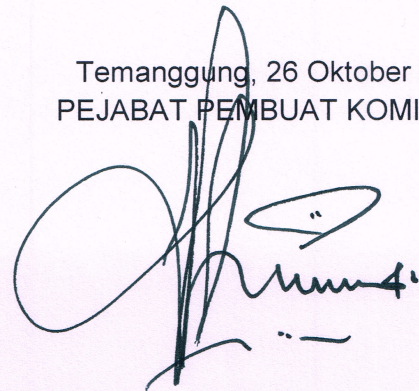 Temanggung, 26 Oktober
PEJABAT PEMBUAT KOMI